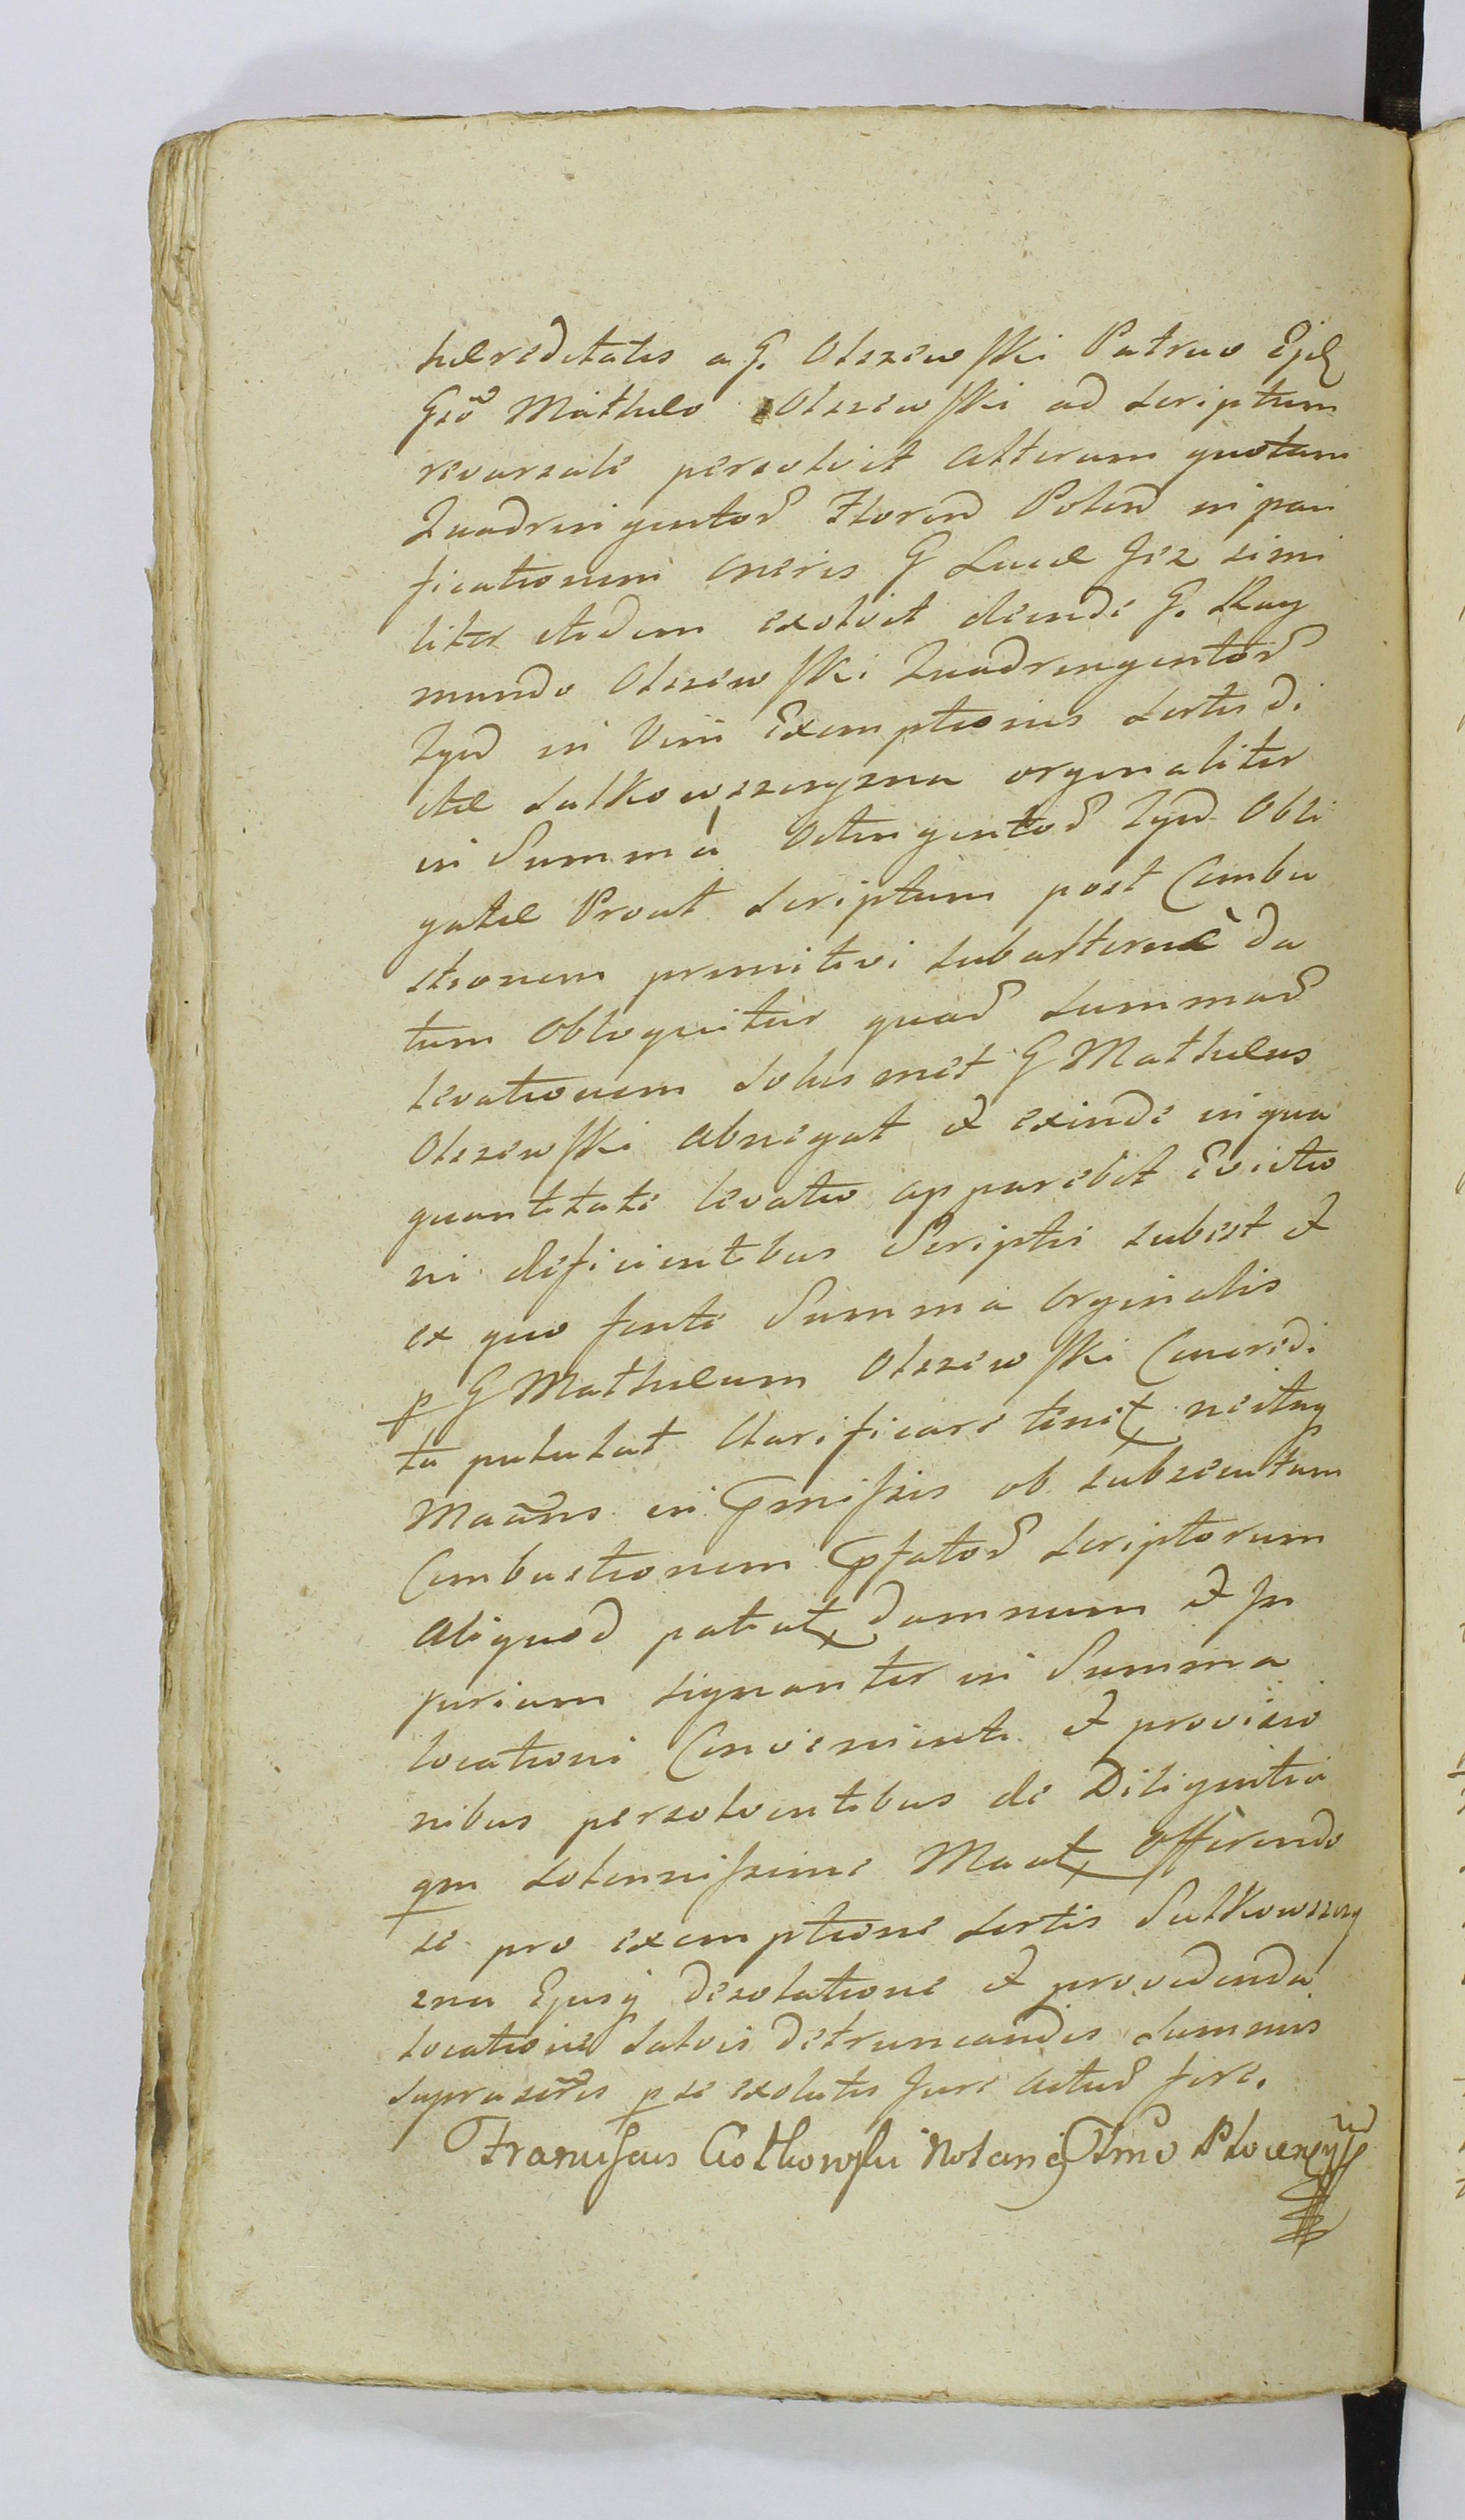 hæreditatis a G. Olszewski Patruo Ejd
Gso Mathæo Olszewski ad scriptum
reversale persolvit alteram quotam
Quadringentos Floren Polon in pari
ficationem oneris G Lucæ Jez simi
liter itidem exolvit deinde G. Ray
mundo Olszewski Quadringentos
Zyd in Vim Exemptionis sortis di
ctæ Sulkowszczyzna orginaliter
in Summa Octingentos Zyd Obli
gatæ Prout scriptum post Combu
stionem primitivi subalterne da
tum obloquitur quas summas
levationem solus met G Mathæus
Olszewski abnegat et exinde in qua
quantitate levatio apparebit Evictio
ni deficientibus Scriptis subest et
ex quo fonte Summa orginalis
p G Mathæum Olszewski Concredi
ta pululat Clarificare tenet neitaq
Maans in Præmissis ob subsecutam
Combustionem præfatos scriptorum
aliquod patiat damnum et In
juriam signanter in Summa
locationi Convenienti et provisio
nibus persolventibus de Diligentia
qm solennissime Maat offerendo
se pro exemptione sortis Sulkowszczy
zna Ejusq desolatione et providenda
locatione salvis detruncandis summis
suprascris p se exolutis Jure actus fere.
Franciscus Notari